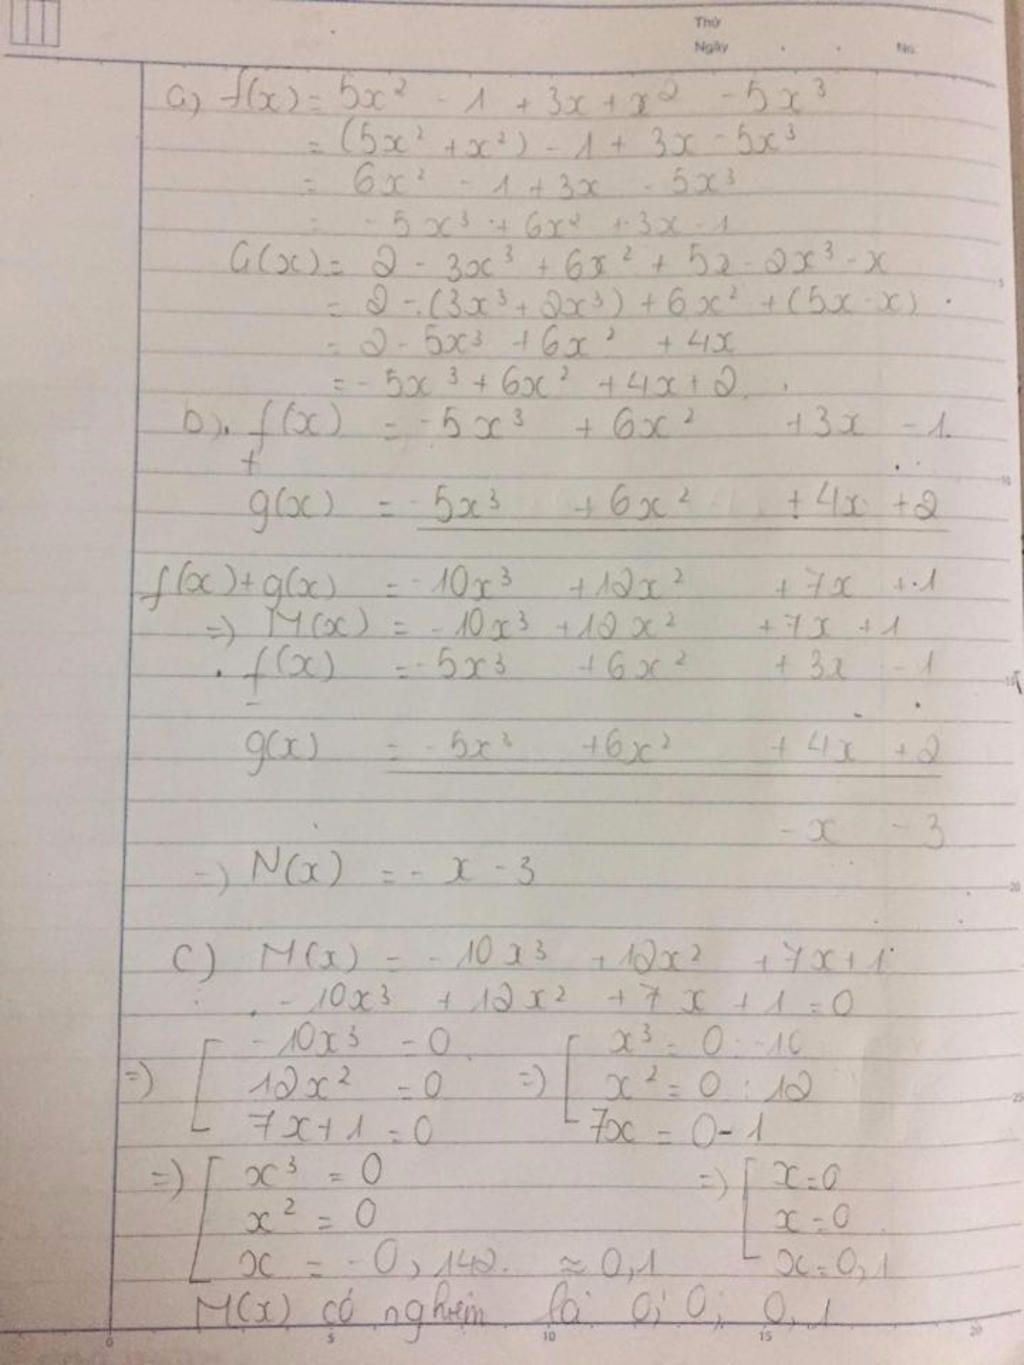 Thứ
Ngày . . No.
a) f(x) = 5x² - 1 + 3x + x² - 5x³
= (5x² + x²) - 1 + 3x - 5x³
= 6x² - 1 + 3x - 5x³
= -5x³ + 6x² + 3x - 1
G(x) = 2 - 3x³ + 6x² + 5x - 2x³ - x
= 2 - (3x³ + 2x³) + 6x² + (5x - x)
= 2 - 5x³ + 6x² + 4x
= -5x³ + 6x² + 4x + 2
b) . f(x) = -5x³ + 6x² + 3x - 1
+
g(x) = -5x³ + 6x² + 4x + 2
f(x) + g(x) = -10x³ + 12x² + 7x + 1
=) M(x) = -10x³ + 12x² + 7x + 1
. f(x) = -5x³ + 6x² + 3x - 1
-
g(x) = -5x³ + 6x² + 4x + 2
- x - 3
=) N(x) = - x - 3
c) M(x) = -10x³ + 12x² + 7x + 1
-10x³ + 12x² + 7x + 1 = 0
-10x³ = 0 x³ = 0 : -10
=) 12x² = 0 =) x² = 0 : 12
7x + 1 = 0 7x = 0 - 1
=) x³ = 0 =) x = 0
x² = 0 x = 0
x = -0,142. ≈ 0,1 x = 0,1
M(x) có nghiệm là 0; 0; 0,1
0 5 10 15 20
5
10
15
20
25